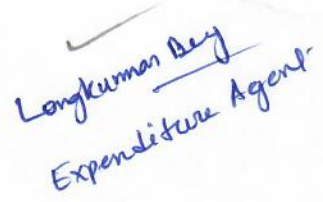 Longkumar Bey
Expenditure Agent